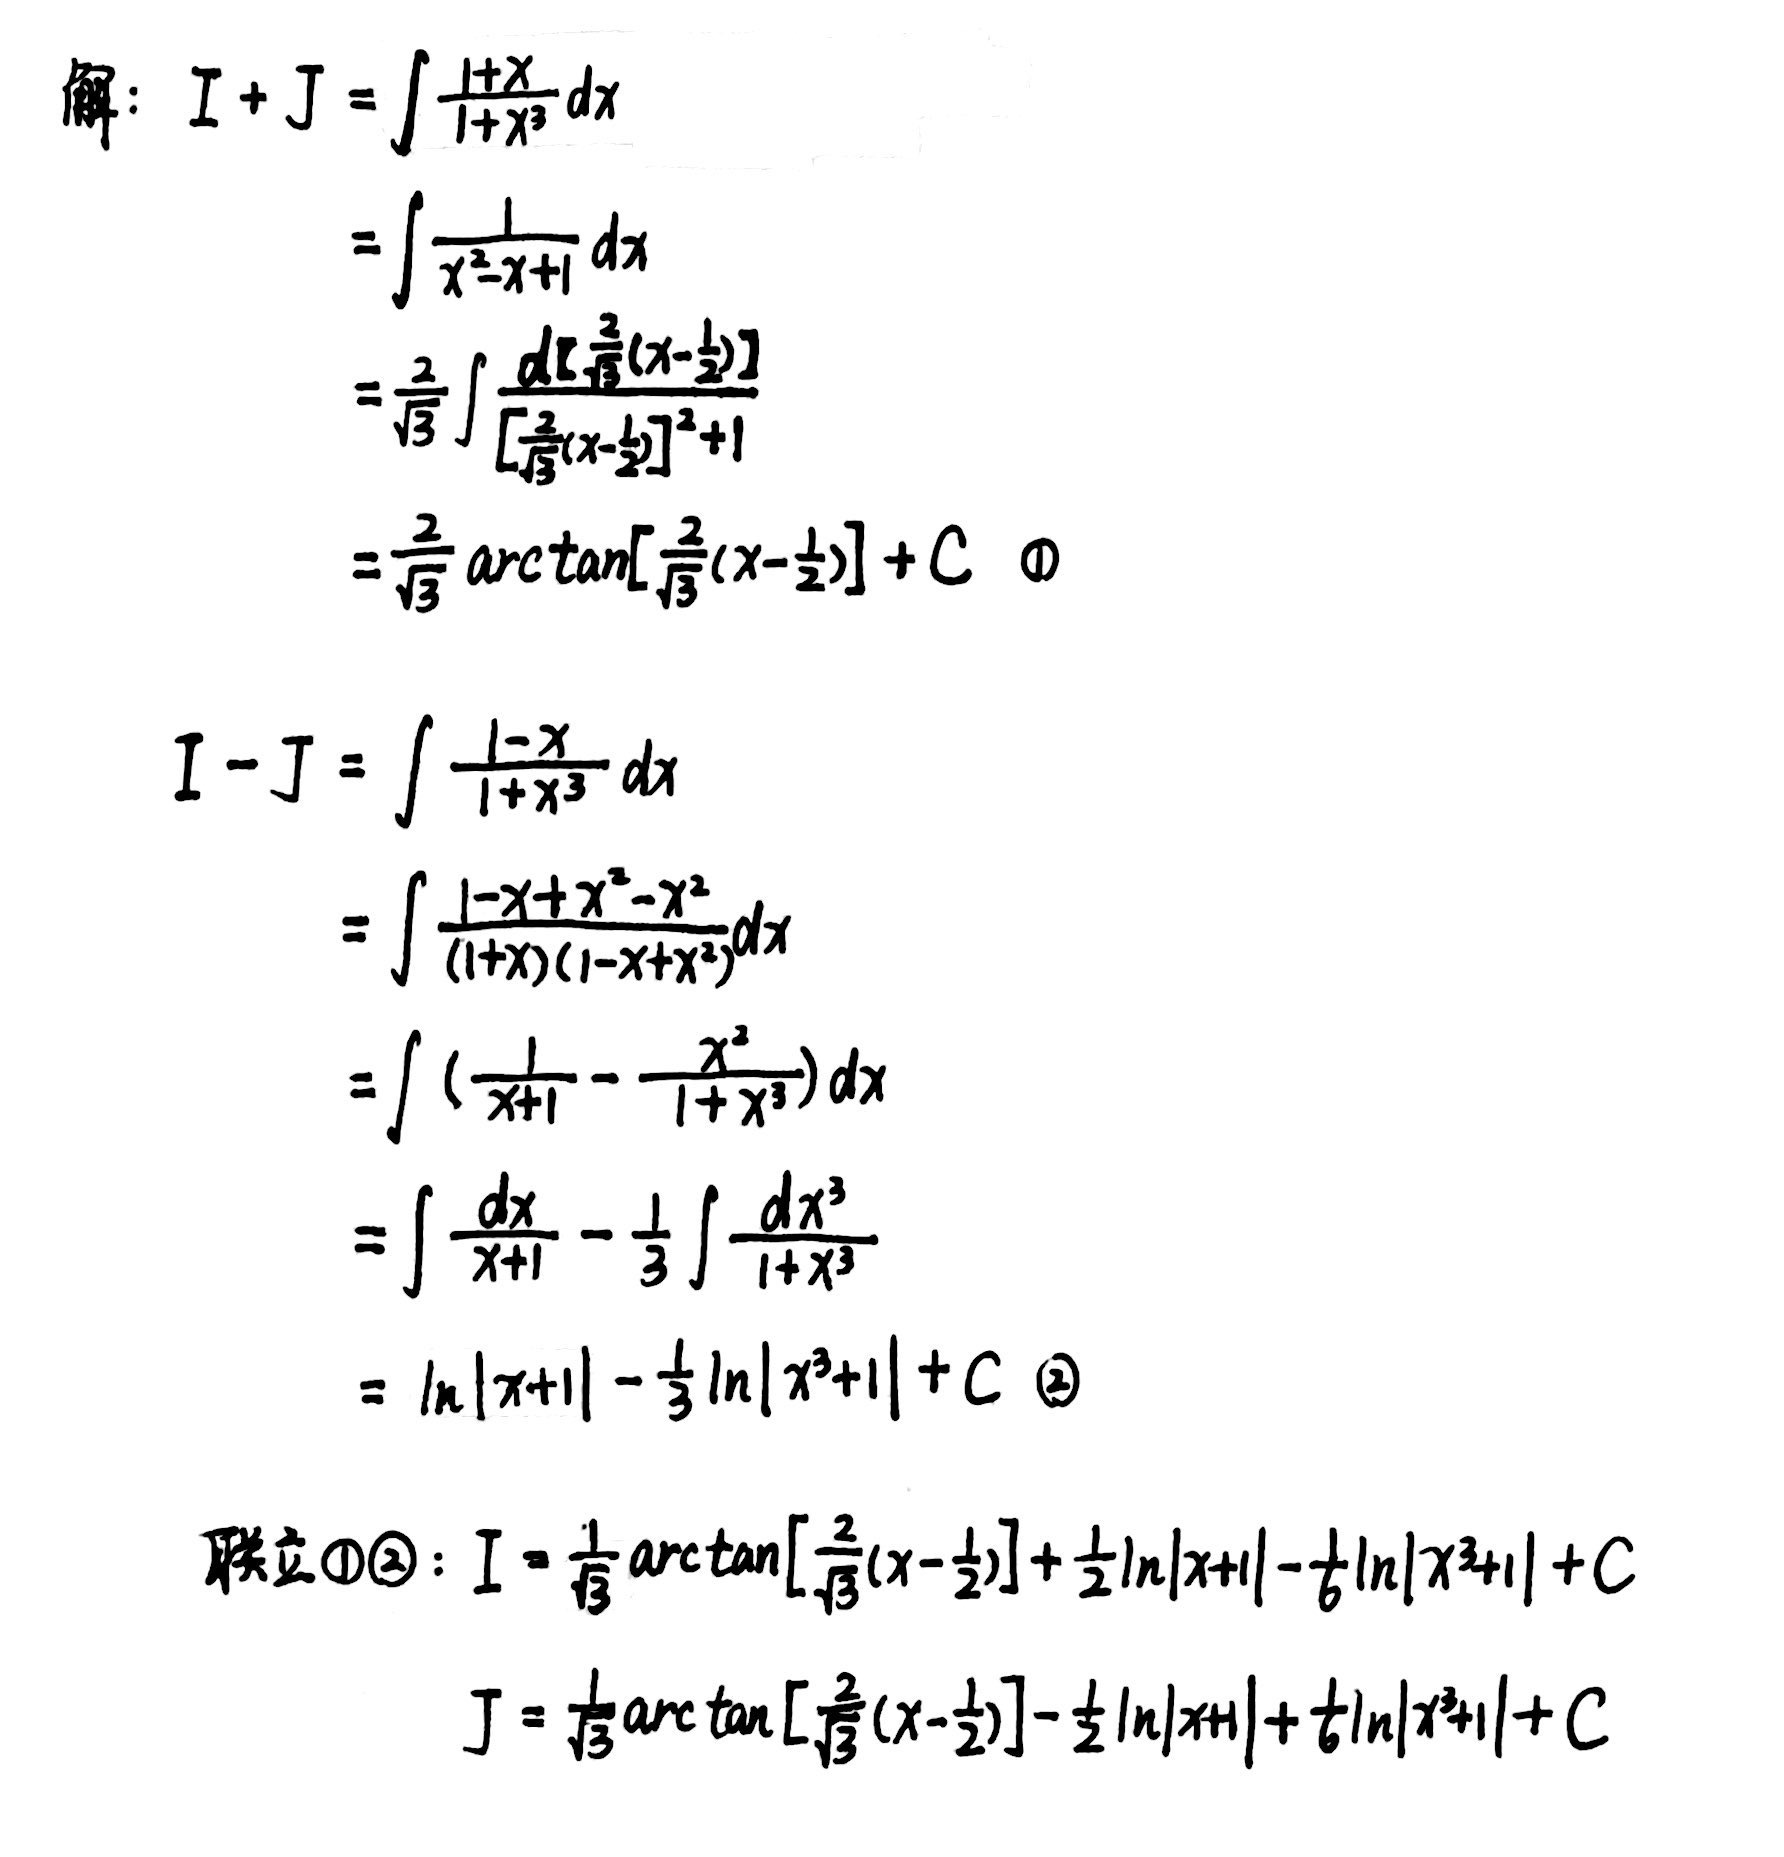 解: I + J = ∫ (1+x)/(1+x³) dx
= ∫ 1/(x²-x+1) dx
= 2/√3 ∫ d[2/√3(x-1/2)]/([2/√3(x-1/2)]²+1)
= 2/√3 arctan[2/√3(x-1/2)] + C ①
I - J = ∫ (1-x)/(1+x³) dx
= ∫ (1-x+x²-x²)/((1+x)(1-x+x²)) dx
= ∫ (1/(x+1) - x²/(1+x³)) dx
= ∫ dx/(x+1) - 1/3 ∫ dx³/(1+x³)
= ln|x+1| - 1/3 ln|x³+1| + C ②
联立①②: I = 1/√3 arctan[2/√3(x-1/2)] + 1/2 ln|x+1| - 1/6 ln|x³+1| + C
J = 1/√3 arctan[2/√3(x-1/2)] - 1/2 ln|x+1| + 1/6 ln|x³+1| + C